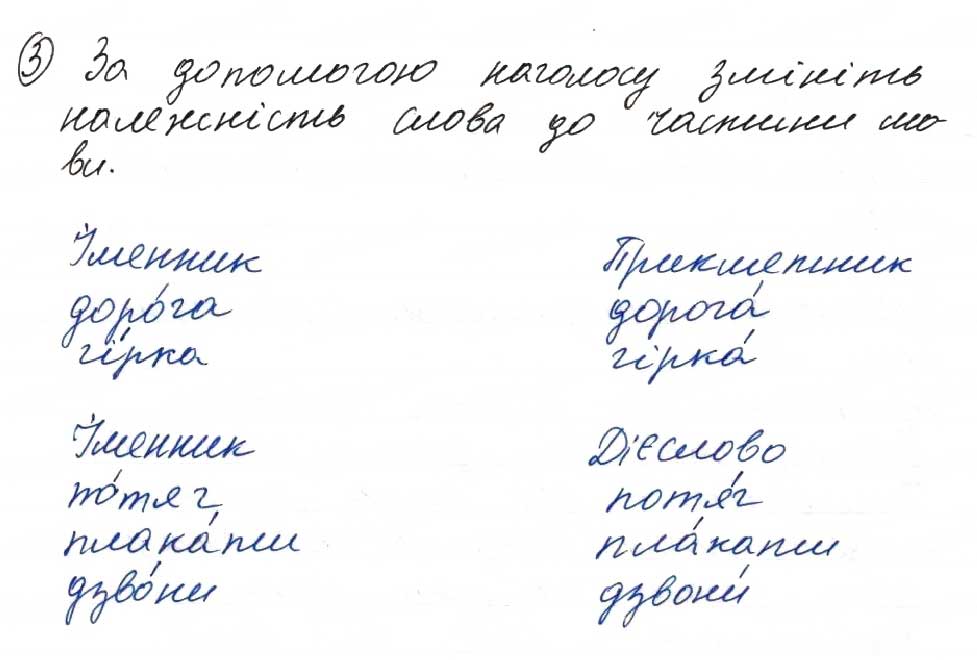 ③ За допомогою наголосу змініть
належність слова до частини мо
ви.
Іменник Прикметник
доро́га дорога́
гі́рка гірка́
Іменник Дієслово
по́тяг потя́г
плака́ти пла́кати
дзво́ни дзвони́